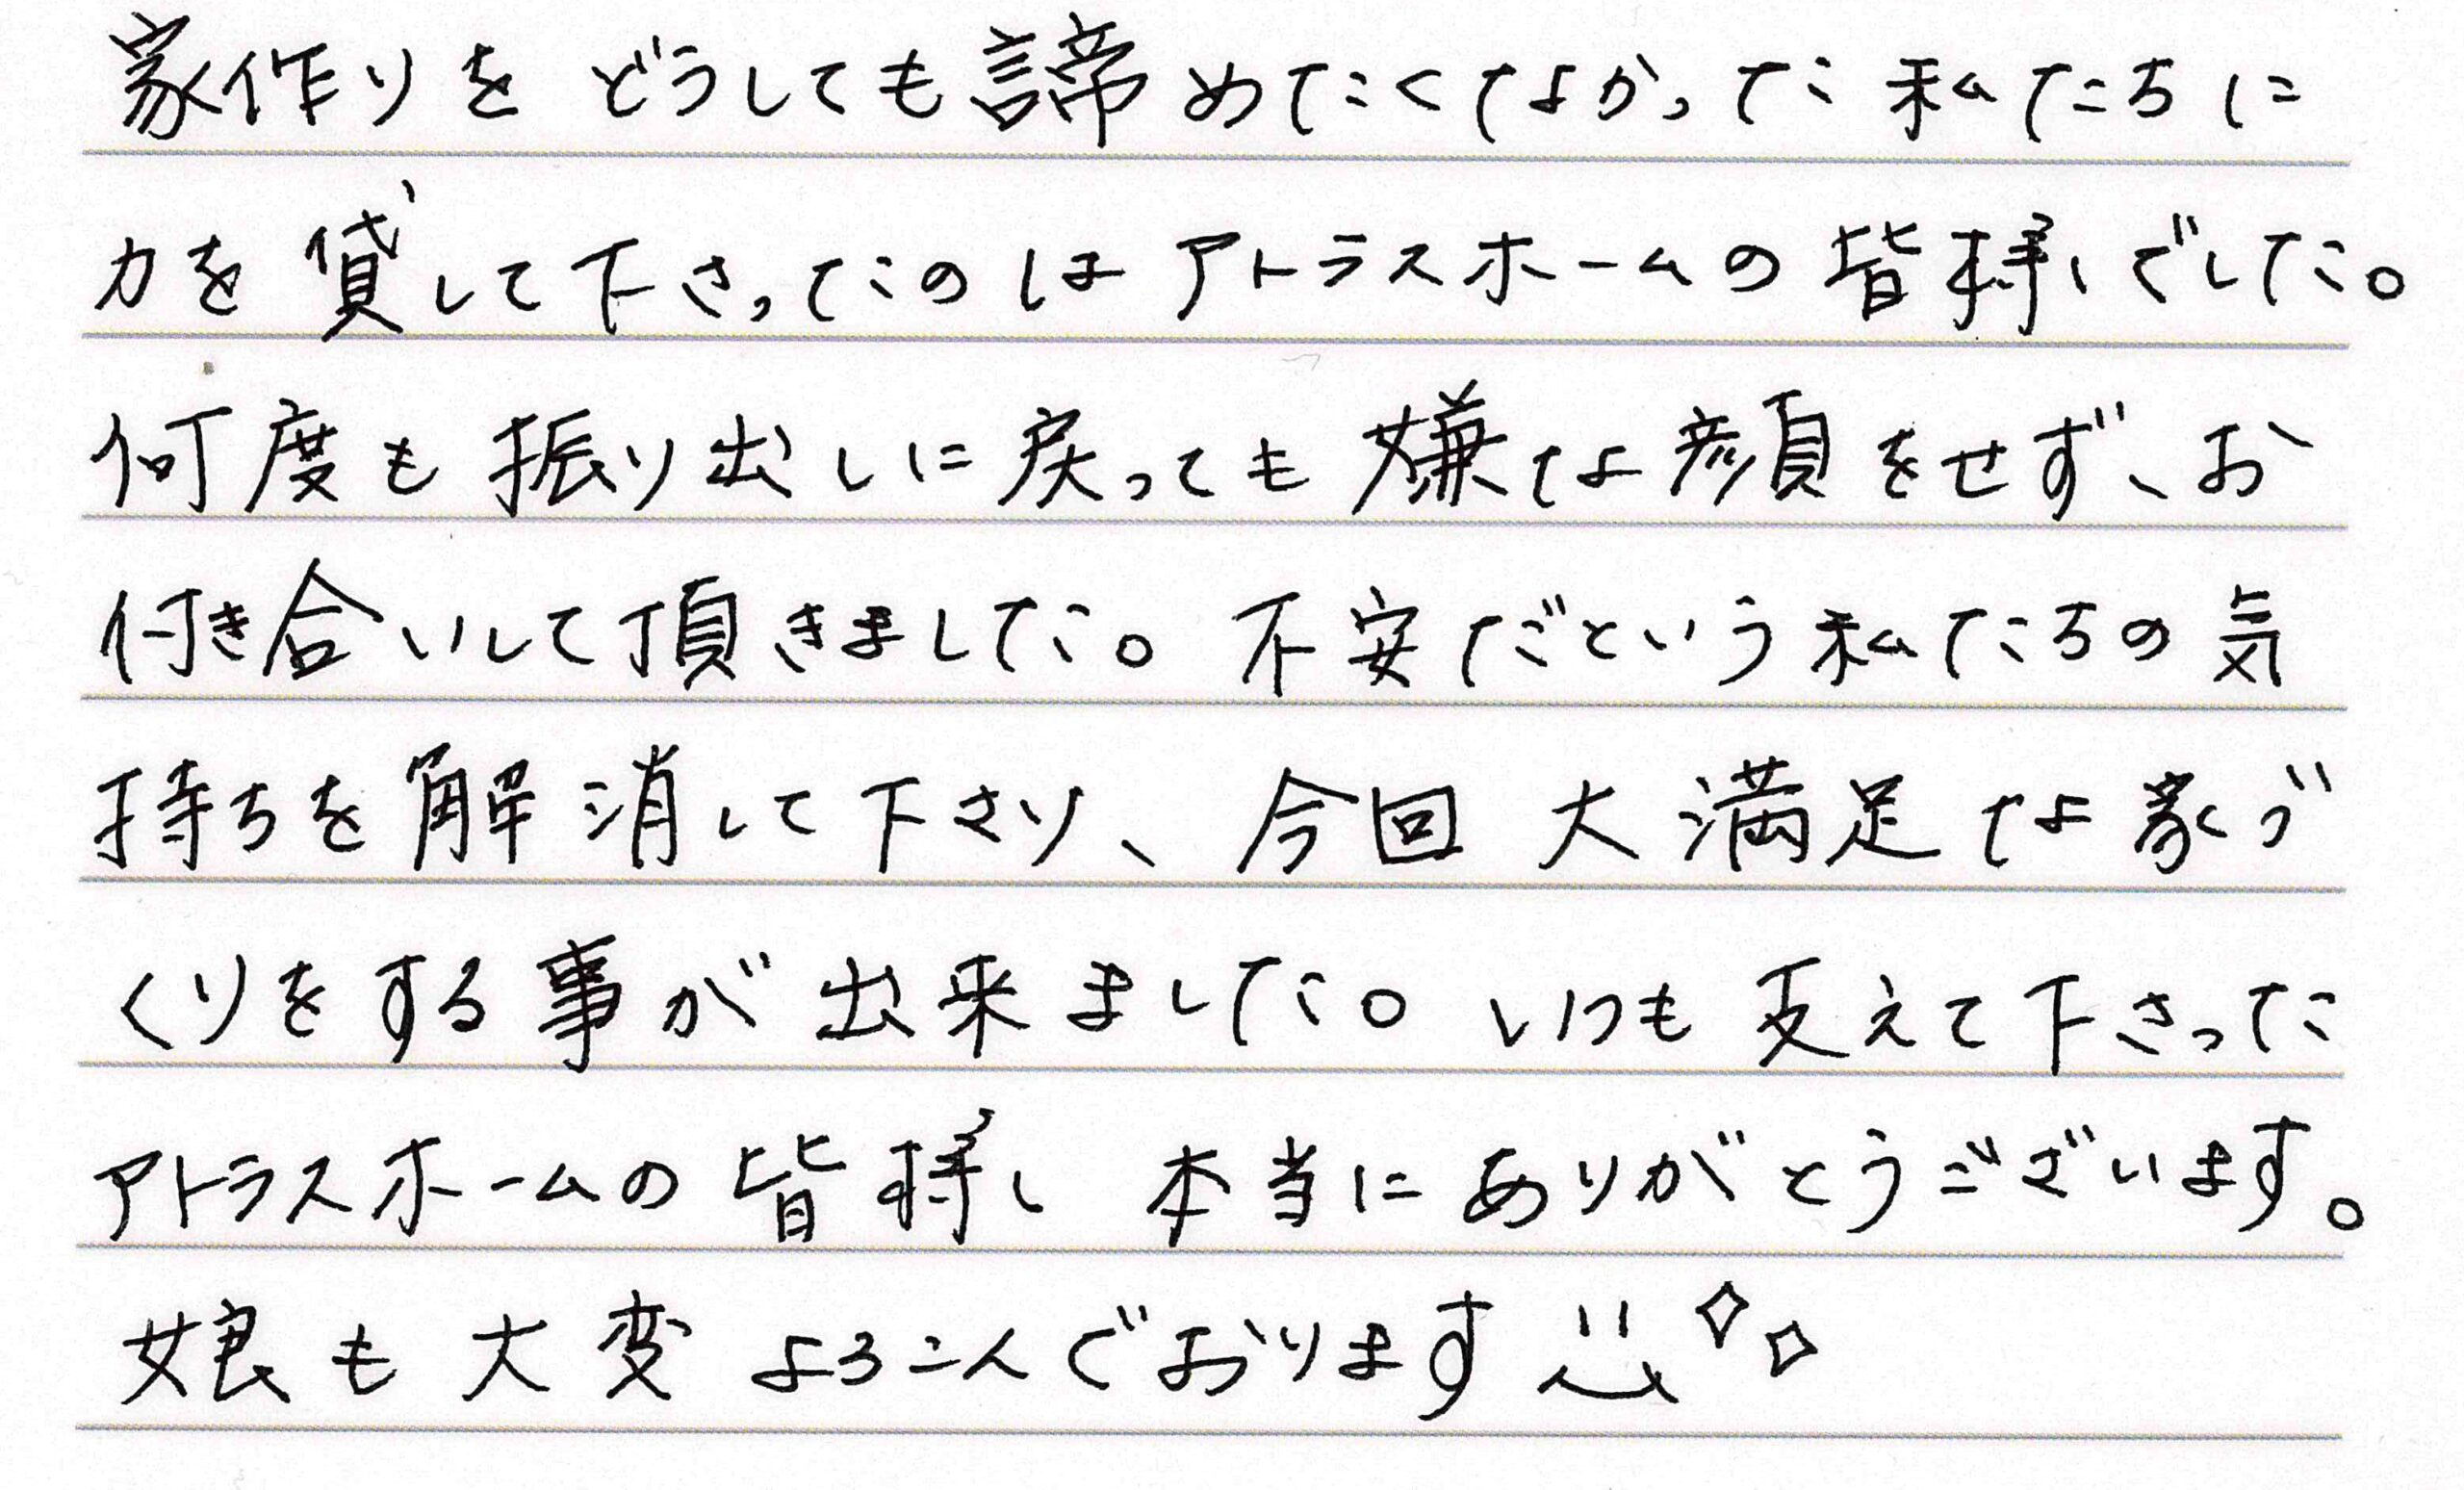 家作りを どうしても諦めたくなかった 私たちに
力を貸して下さったのは アトラスホームの皆様でした。
何度も振り出しに戻っても嫌な顔をせず、お
付き合いして頂きました。不安だという私たちの気
持ちを解消して下さり、今回 大満足な家づ
くりをする事が出来ました。いつも支えて下さった
アトラスホームの皆様 本当にありがとうございます。
娘も大変よろこんでおります